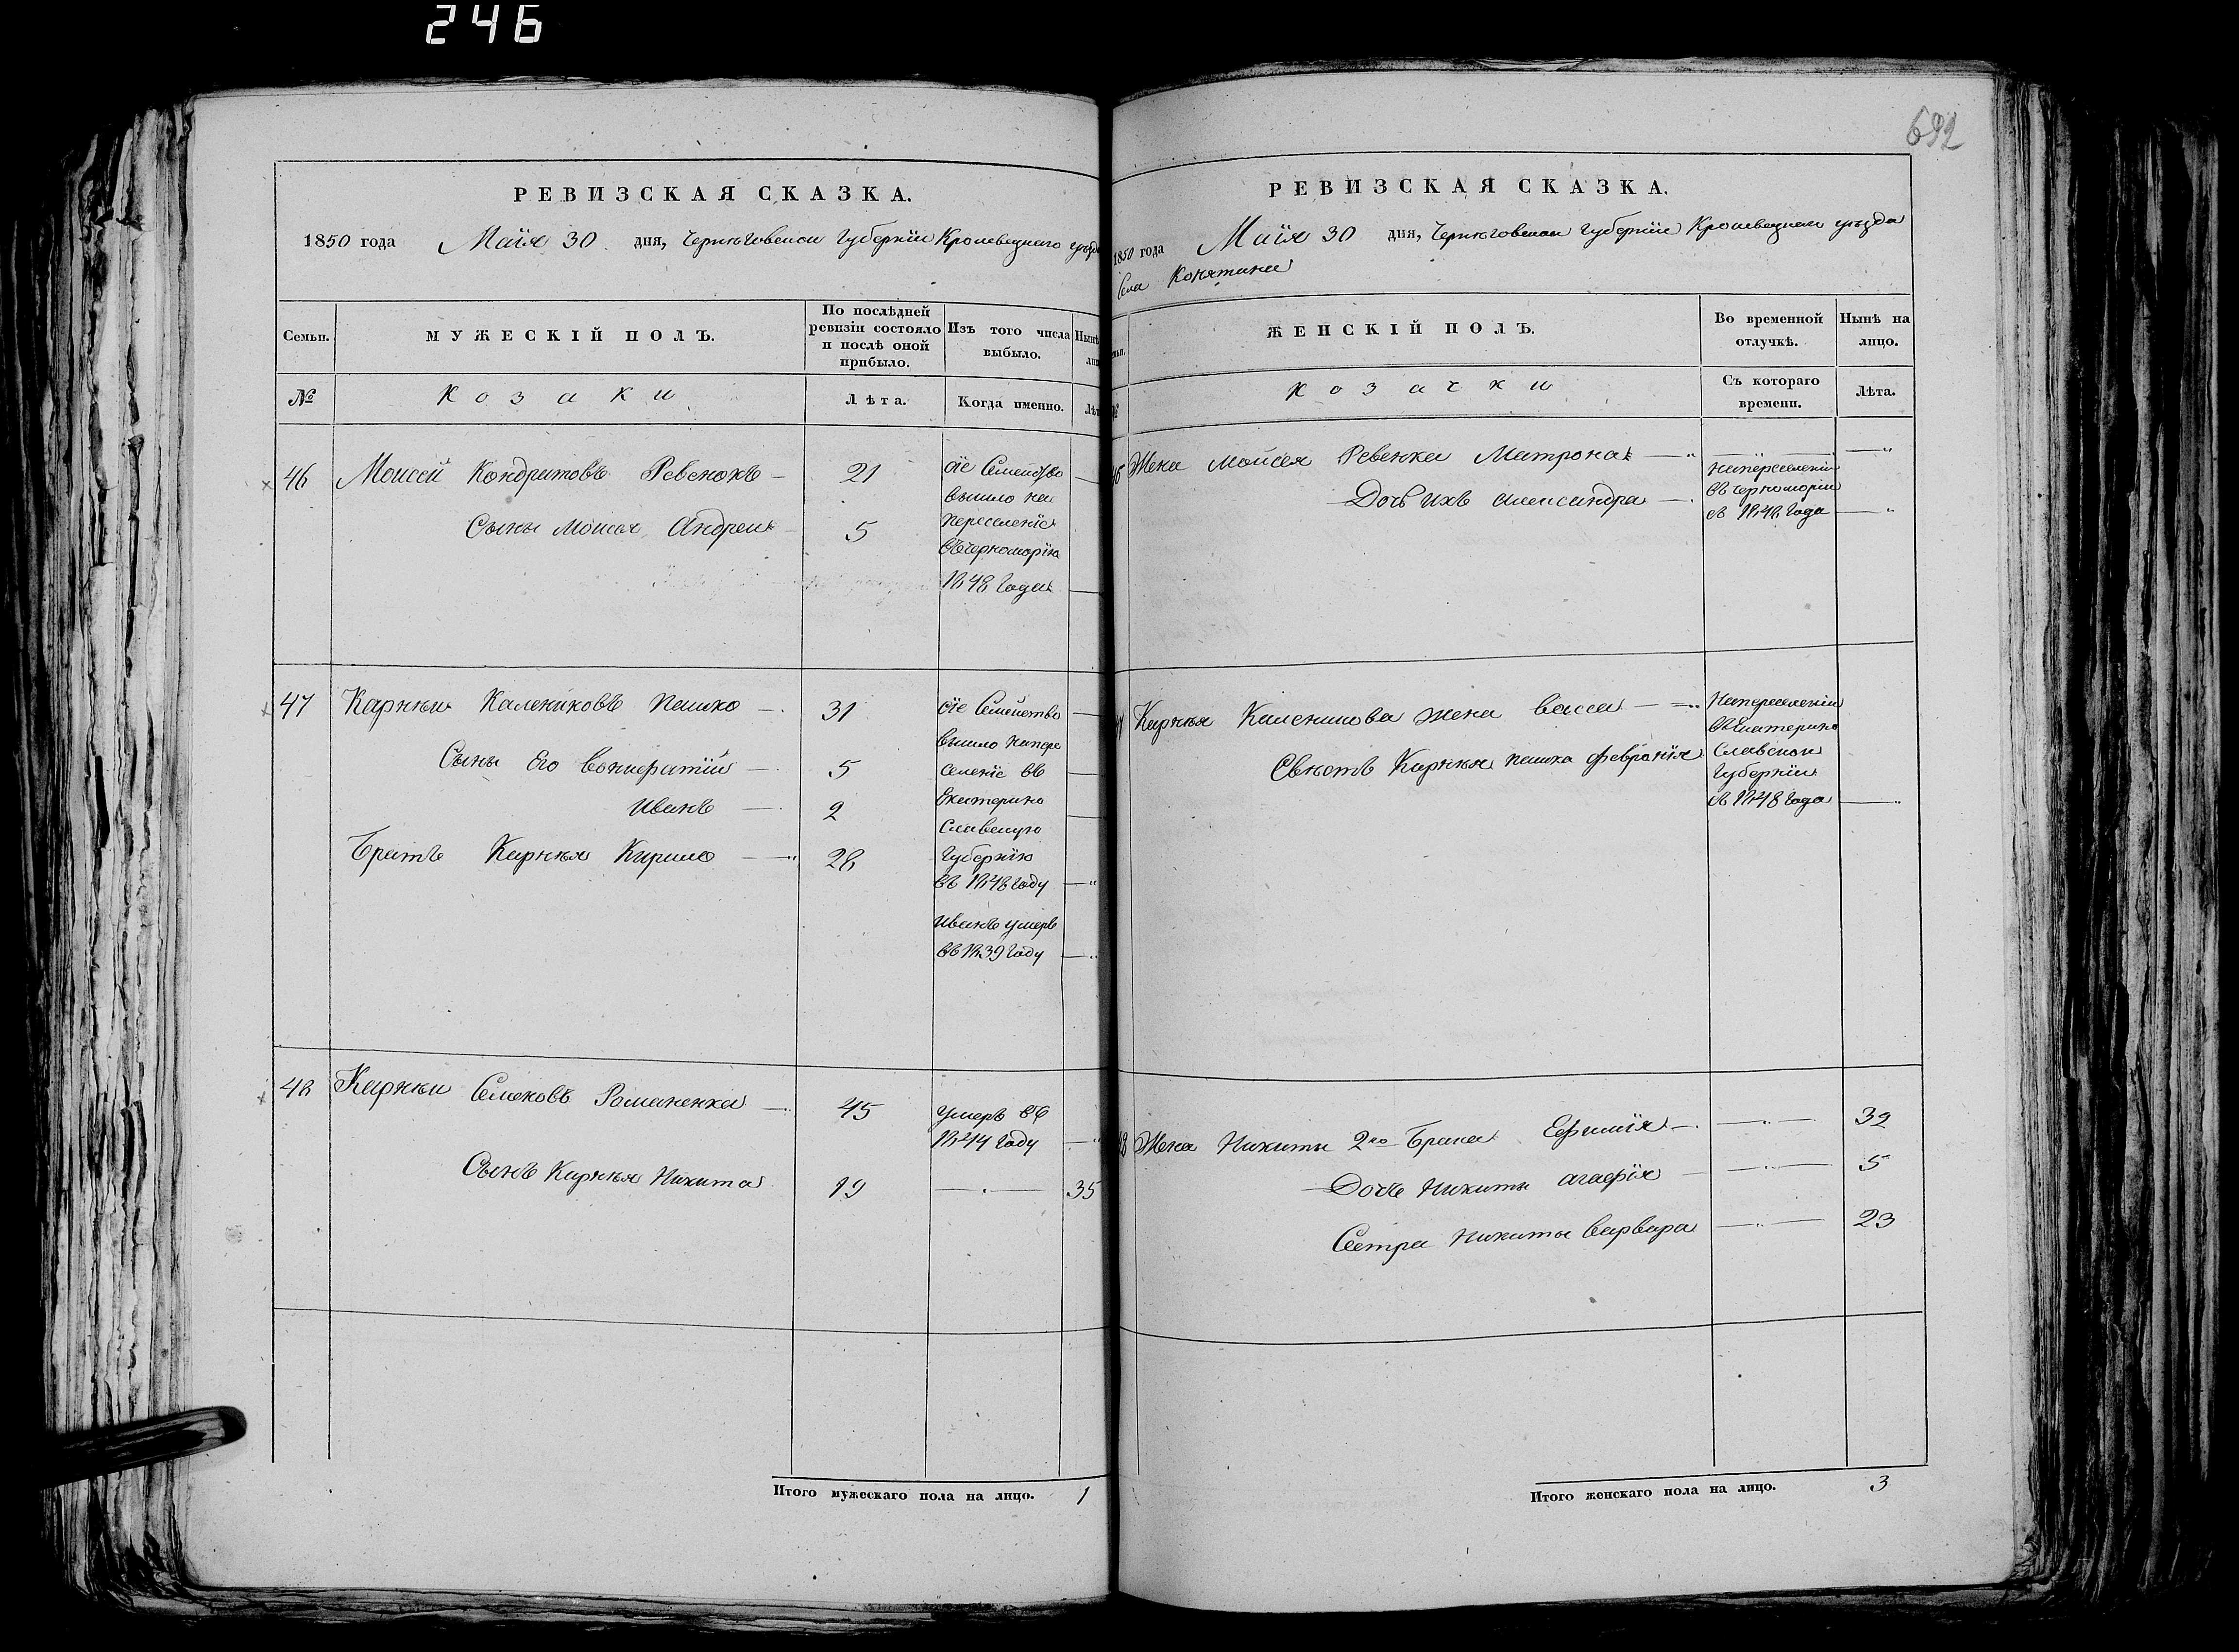 246
РЕВИЗСКАЯ СКАЗКА.
1850 года Маія 30 дня, Черниговской Губерніи Кролевецкаго уѣзда
Семьи.
МУЖЕСКІЙ ПОЛЪ.
По послѣдней ревизіи состояло и послѣ оной прибыло.
Изъ того числа выбыло.
№
Козаки
Лѣта.
Когда именно.
46 Моисей Кондратовъ Ревенокъ 21
Сынъ Моисея Андрей 5
сіе Семейство
вышло на
переселеніе
въ черноморію
1848 Года
47 Карнѣй Калениковъ Пашко 31
Сыны Его Вонифатій 5
Иванъ 2
Братъ Карнѣя Кирило 28
сіе Семейство
вышло напере
селеніе въ
Екатерино
Славскую
Губернію
въ 1848 Году
Иванъ умеръ
въ 1839 Году
48 Карнѣй Семеновъ Романенко 45 умеръ въ
1844 Году
Сынъ Карнѣя Никита 19 35
Итого мужескаго пола на лицо. 1
692
РЕВИЗСКАЯ СКАЗКА.
1850 года Маія 30 дня, Черниговской Губерніи Кролевецкаго уѣзда
Села Конятина
ЖЕНСКІЙ ПОЛЪ.
Во временной отлучкѣ.
Нынѣ на лицо.
Козачки
Съ котораго времени.
Лѣта.
46 Жена Моисея Ревенка Матрона
Дочь ихъ Александра
напереселеніи
въ черноморіи
съ 1848 Года
47 Карнѣя Каленикова жена Васса
Карнѣя Пашка Февронія
Напереселеніи
въ Екатерино
Славской
Губерніи
съ 1848 Года
48 Жена Никиты 2го Брака Ефимія 32
Дочь Никиты Агафія 5
Сестра Никиты Варвара 23
Итого женскаго пола на лицо. 3